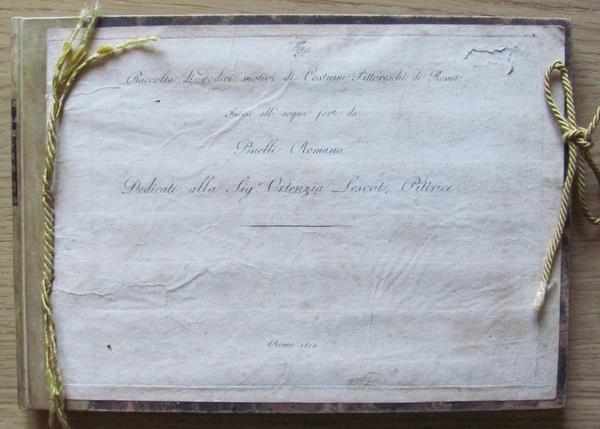 Raccolta di dodici motivi di Costumi Pittoreschi di Roma
Incisi all' acqua forte da
Pinelli Romano
Dedicati alla Sig.ª Ortenzia Lescot, Pittrice
Roma 1813